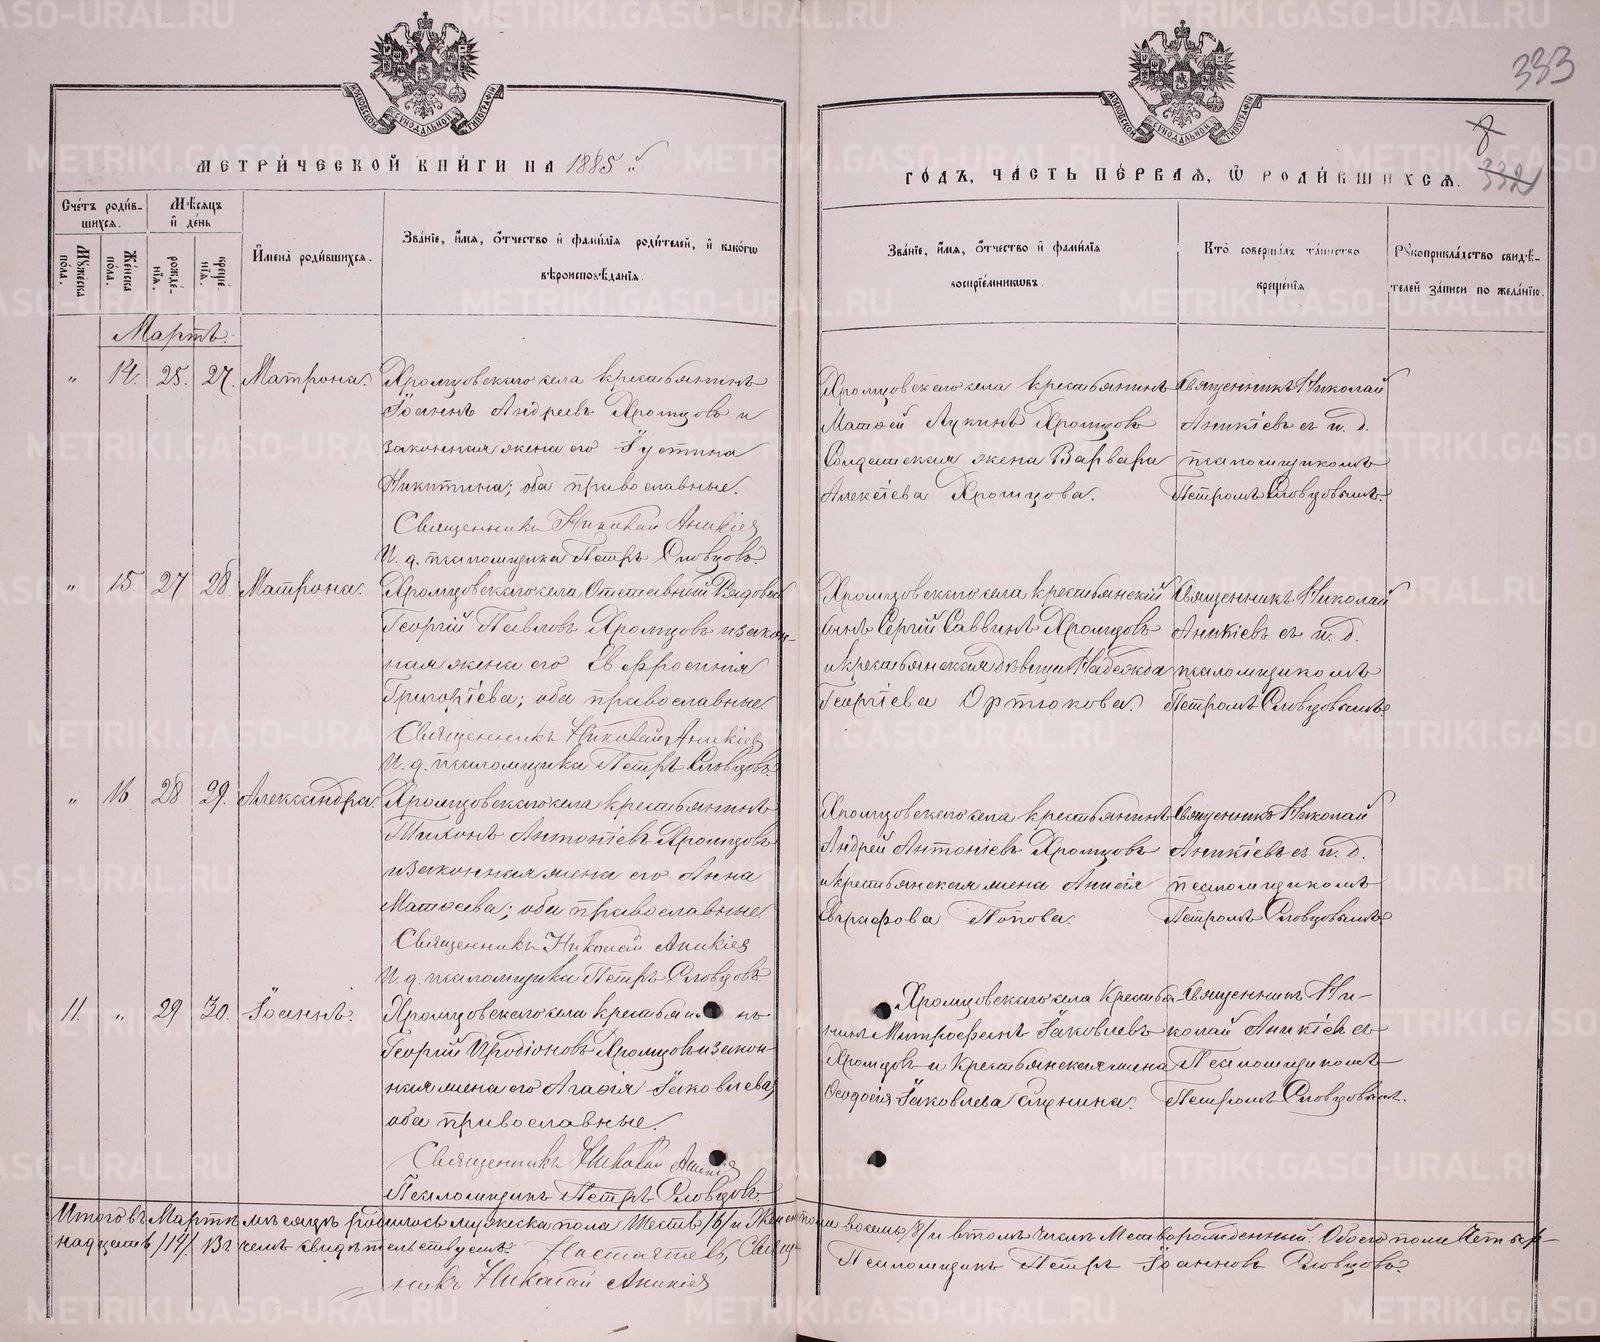 333
8
332
МЕТРИ́ЧЕСКОЙ КНИ́ГИ НА 1885 й
ГО́ДЪ, ЧА́СТЬ ПЕ́РВАЯ, Ѡ РОДИ́ВШИХСЯ.
Сче́тъ роди́вшихся.
Му́жеска пола.
Же́нска пола.
Мѣ́сяцъ и де́нь
рожде́нїя.
креще́нїя.
И҆мена̀ роди́вшихся.
Зва́нїе, и҆́мя, о҆́тчество и҆ фами́лїя роди́телей, и҆ како́гѡ
вѣроисповѣ́данїя.
Зва́нїе, и҆́мя, о҆́тчество и҆ фами́лїя
воспрїе́мникѡвъ.
Кто̀ соверша́лъ та́инство
креще́нїя
Рꙋкоприкла́дство свидѣ́-
телей за́писи по жела́нїю.
Мартъ.
" 14. 25. 27. Матрона.
Хромцовскаго села крестьянинъ
Іоаннъ Андреевъ Хромцовъ и
законная жена его Іустина
Никитина; оба православные.
Священникъ Николай Аникіев
И. д. псаломщика Петръ Словцовъ.
Хромцовскаго села крестьянинъ
Матѳей Лукинъ Хромцовъ
Солдатская жена Варвара
Алексіева Хромцова.
Священникъ Николай
Аникіевъ съ и. д.
псаломщикомъ
Петромъ Словцовымъ.
" 15. 27 28. Матрона.
Хромцовскаго села Отставный Рядовой
Георгій Павловъ Хромцовъ и закон-
ная жена его Евфросинія
Григоріева; оба православные.
Священникъ Николай Аникіев
И. д. псаломщика Петръ Словцовъ.
Хромцовскаго села крестьянскій
сынъ Сергій Саввинъ Хромцовъ
и крестьянская дѣвица Надежда
Георгіева Ортюкова.
Священникъ Николай
Аникіевъ съ и. д.
псаломщикомъ
Петромъ Словцовымъ
" 16 28 29. Александра.
Хромцовскаго села крестьянинъ
Тихонъ Антоніевъ Хромцовъ
и законная жена его Анна
Матѳеева; оба православные.
Священникъ Николай Аникіев
И. д. псаломщика Петръ Словцовъ
Хромцовскаго села крестьянинъ
Андрей Антоніевъ Хромцовъ
и крестьянская жена Анисія
Евграфова Попова.
Священникъ Николай
Аникіевъ съ и. д.
псаломщикомъ
Петромъ Словцовымъ
11. " 29 30. Іоаннъ.
Хромцовскаго села крестьянинъ
Георгій Иродіоновъ Хромцовъ и закон-
ная жена его Агаѳія Іаковлева,
оба православные.
Священникъ Николай Аникіев
Псаломщикъ Петръ Словцовъ.
Хромцовскаго села Крестья-
нинъ Митрофанъ Іаковлевъ
Хромцовъ и Крестьянская жена
Ѳеодосія Іаковлева
Священникъ Ни-
колай Аникіевъ съ
Псаломщикомъ
Петромъ Словцовымъ.
Итого въ Мартѣ мѣсяцѣ родилось мужеска пола Шесть /6/ и Женска пола восемь /8/ и въ томъ числѣ Мертворожденный. Обоего пола Четыр-
надцать /14/. Въ чемъ свидѣтельствуемъ: Настоятель, Священ-
никъ Николай Аникіев
Псаломщикъ Петръ Іоанновъ Словцовъ.